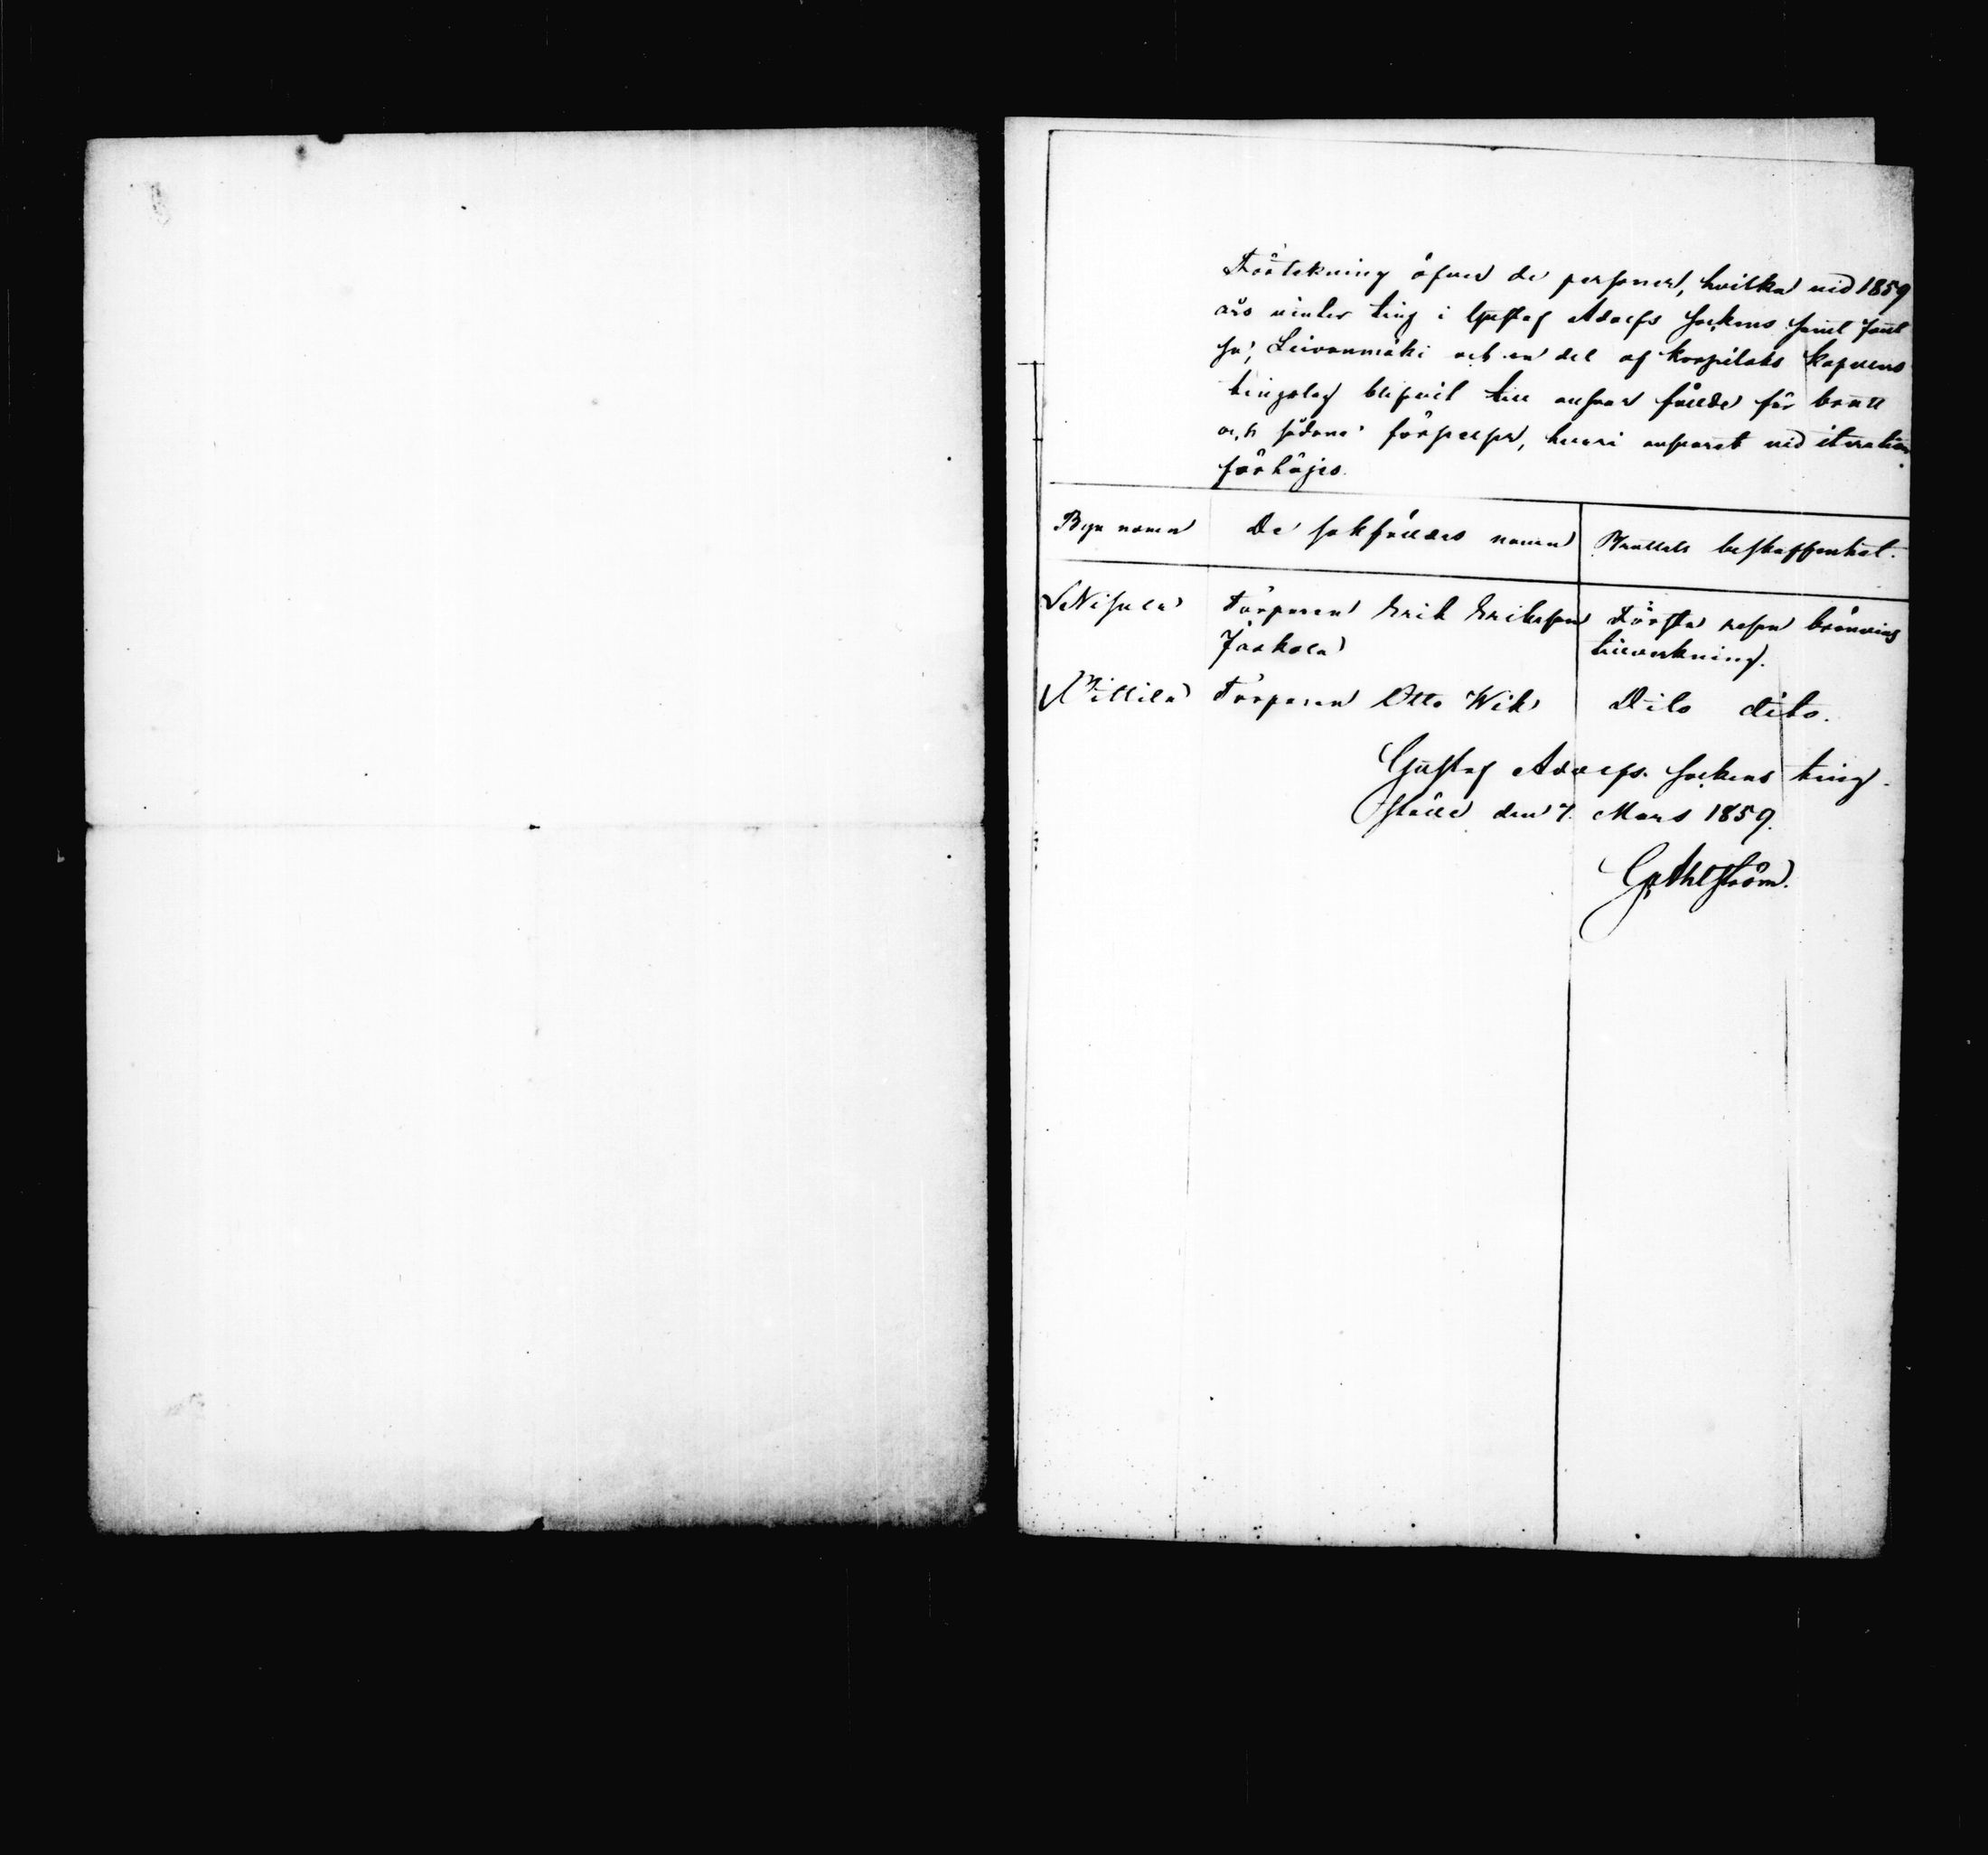 Förtekning öfver de personer, hvilka vid 1859
års vinter ting i Gustaf Adolfs socken samt Jout
sa, Leivonmäki och en del af Korpilaks kapells
tingslag blifvit till ansvar fällde för brott
och sådana förseelser, hvari ansvaret vid iteration
förhöjes.
Byn namn De sakfälldes namn Brottets beskaffenhet.
Nisula Torparen Erik Eriksson Första resan bränvins
Jaakola tillverkning.
Torparen Otto Wik Dito dito.
Gustaf Adolfs sockens ting
ställe den 7. Mars 1859.
Ahlström.